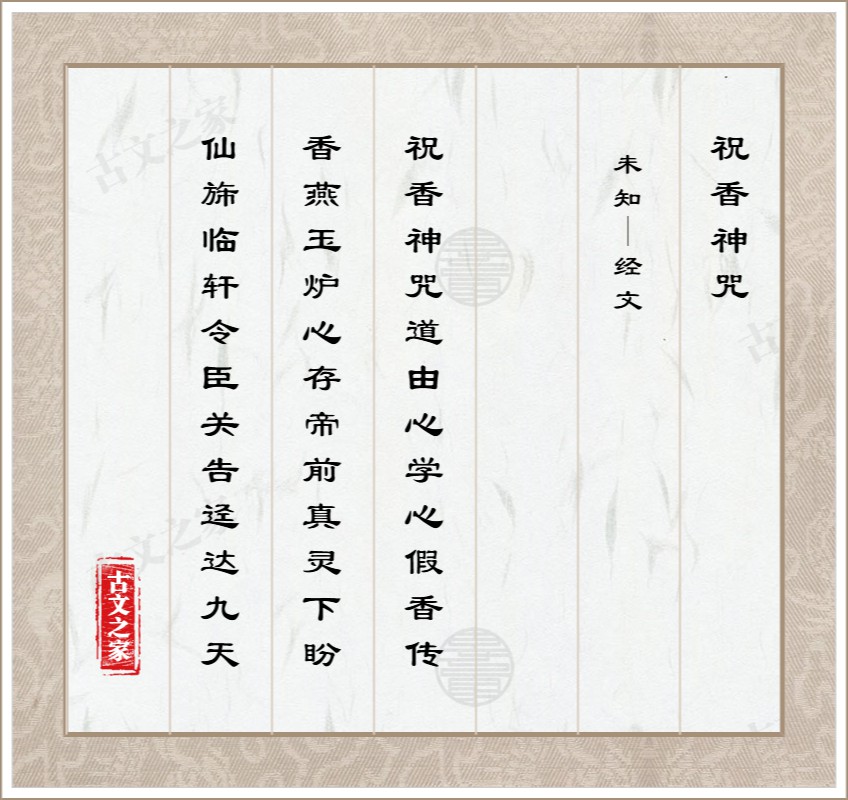 祝香神咒
未知—经文
祝香神咒道由心学心假香传
香燕玉炉心存帝前真灵下盼
仙旆临轩令臣关告迳达九天
古文之家
古文之家
古文之家